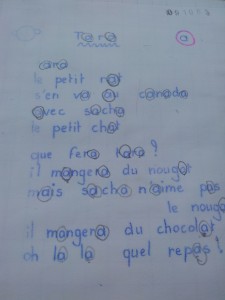 Rara
ara
le petit rat
s'en va au canada
avec sacha
le petit chat
que fera Rara ?
il mangera du nougat
mais sacha n'aime pas
le nougat
il mangera du chocolat
oh la la quel repas !